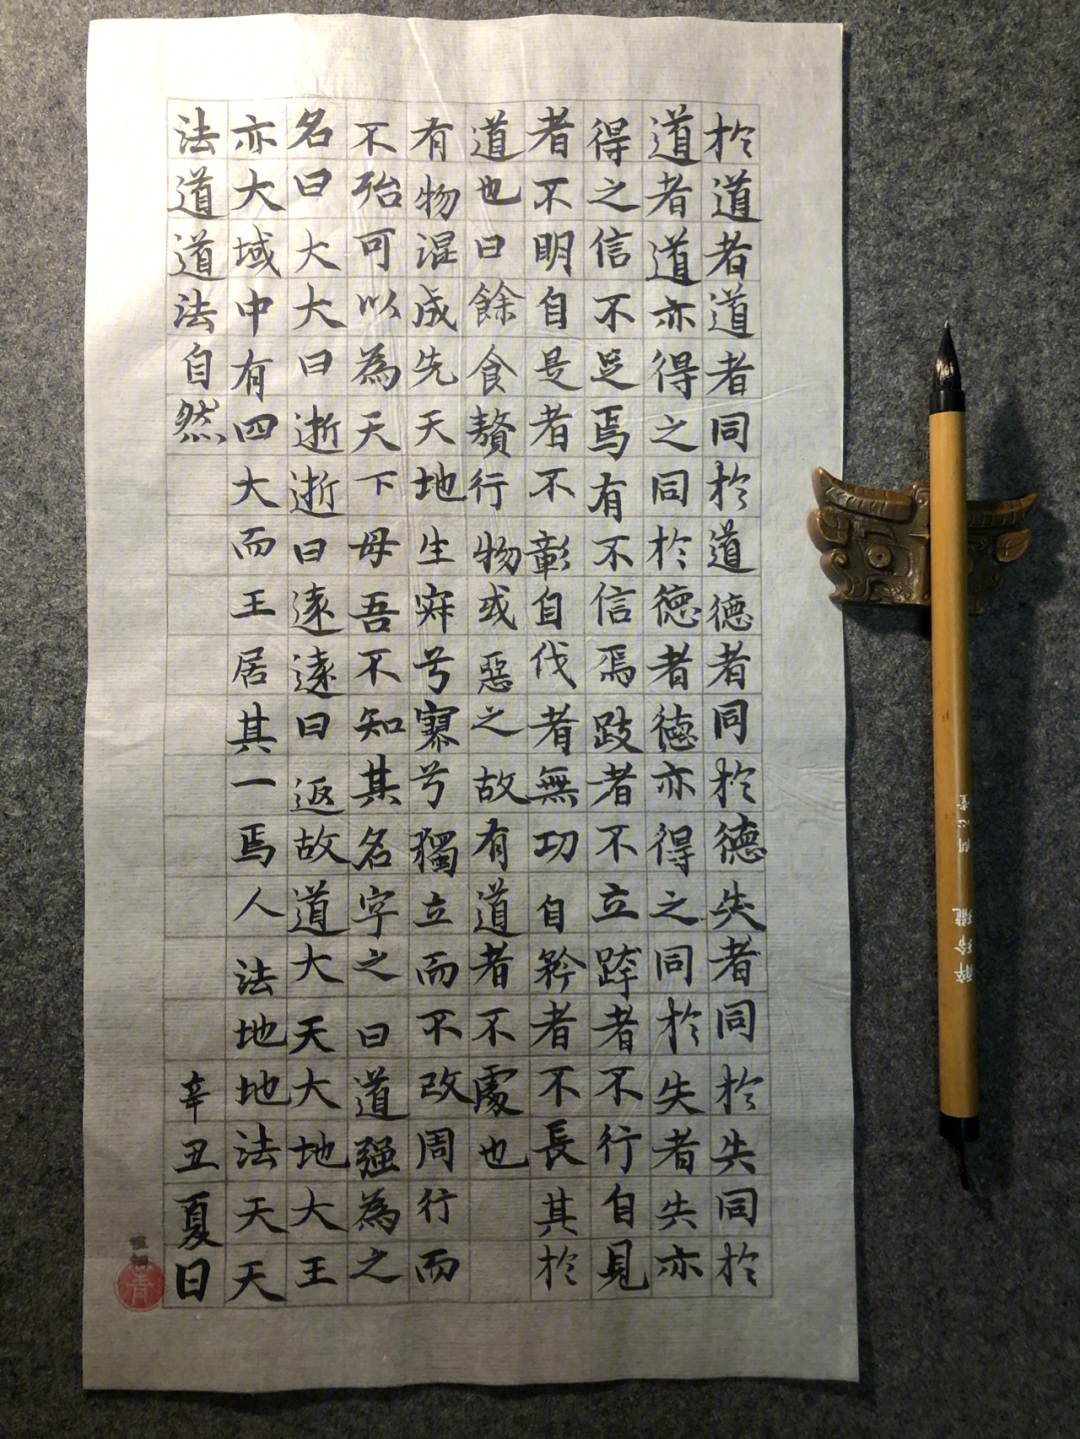 於道者道者同於道德者同於德失者同於失同於
道者道亦得之同於德者德亦得之同於失者失亦
得之信不足焉有不信焉跂者不立跨者不行自見
者不明自是者不彰自伐者無功自矜者不長其於
道也曰餘食贅行物或惡之故有道者不處也
有物混成先天地生寂兮寥兮獨立而不改周行而
不殆可以為天下母吾不知其名字之曰道強為之
名曰大大曰逝逝曰遠遠曰返故道大天大地大王
亦大域中有四大而王居其一焉人法地地法天天
法道道法自然
辛丑夏日